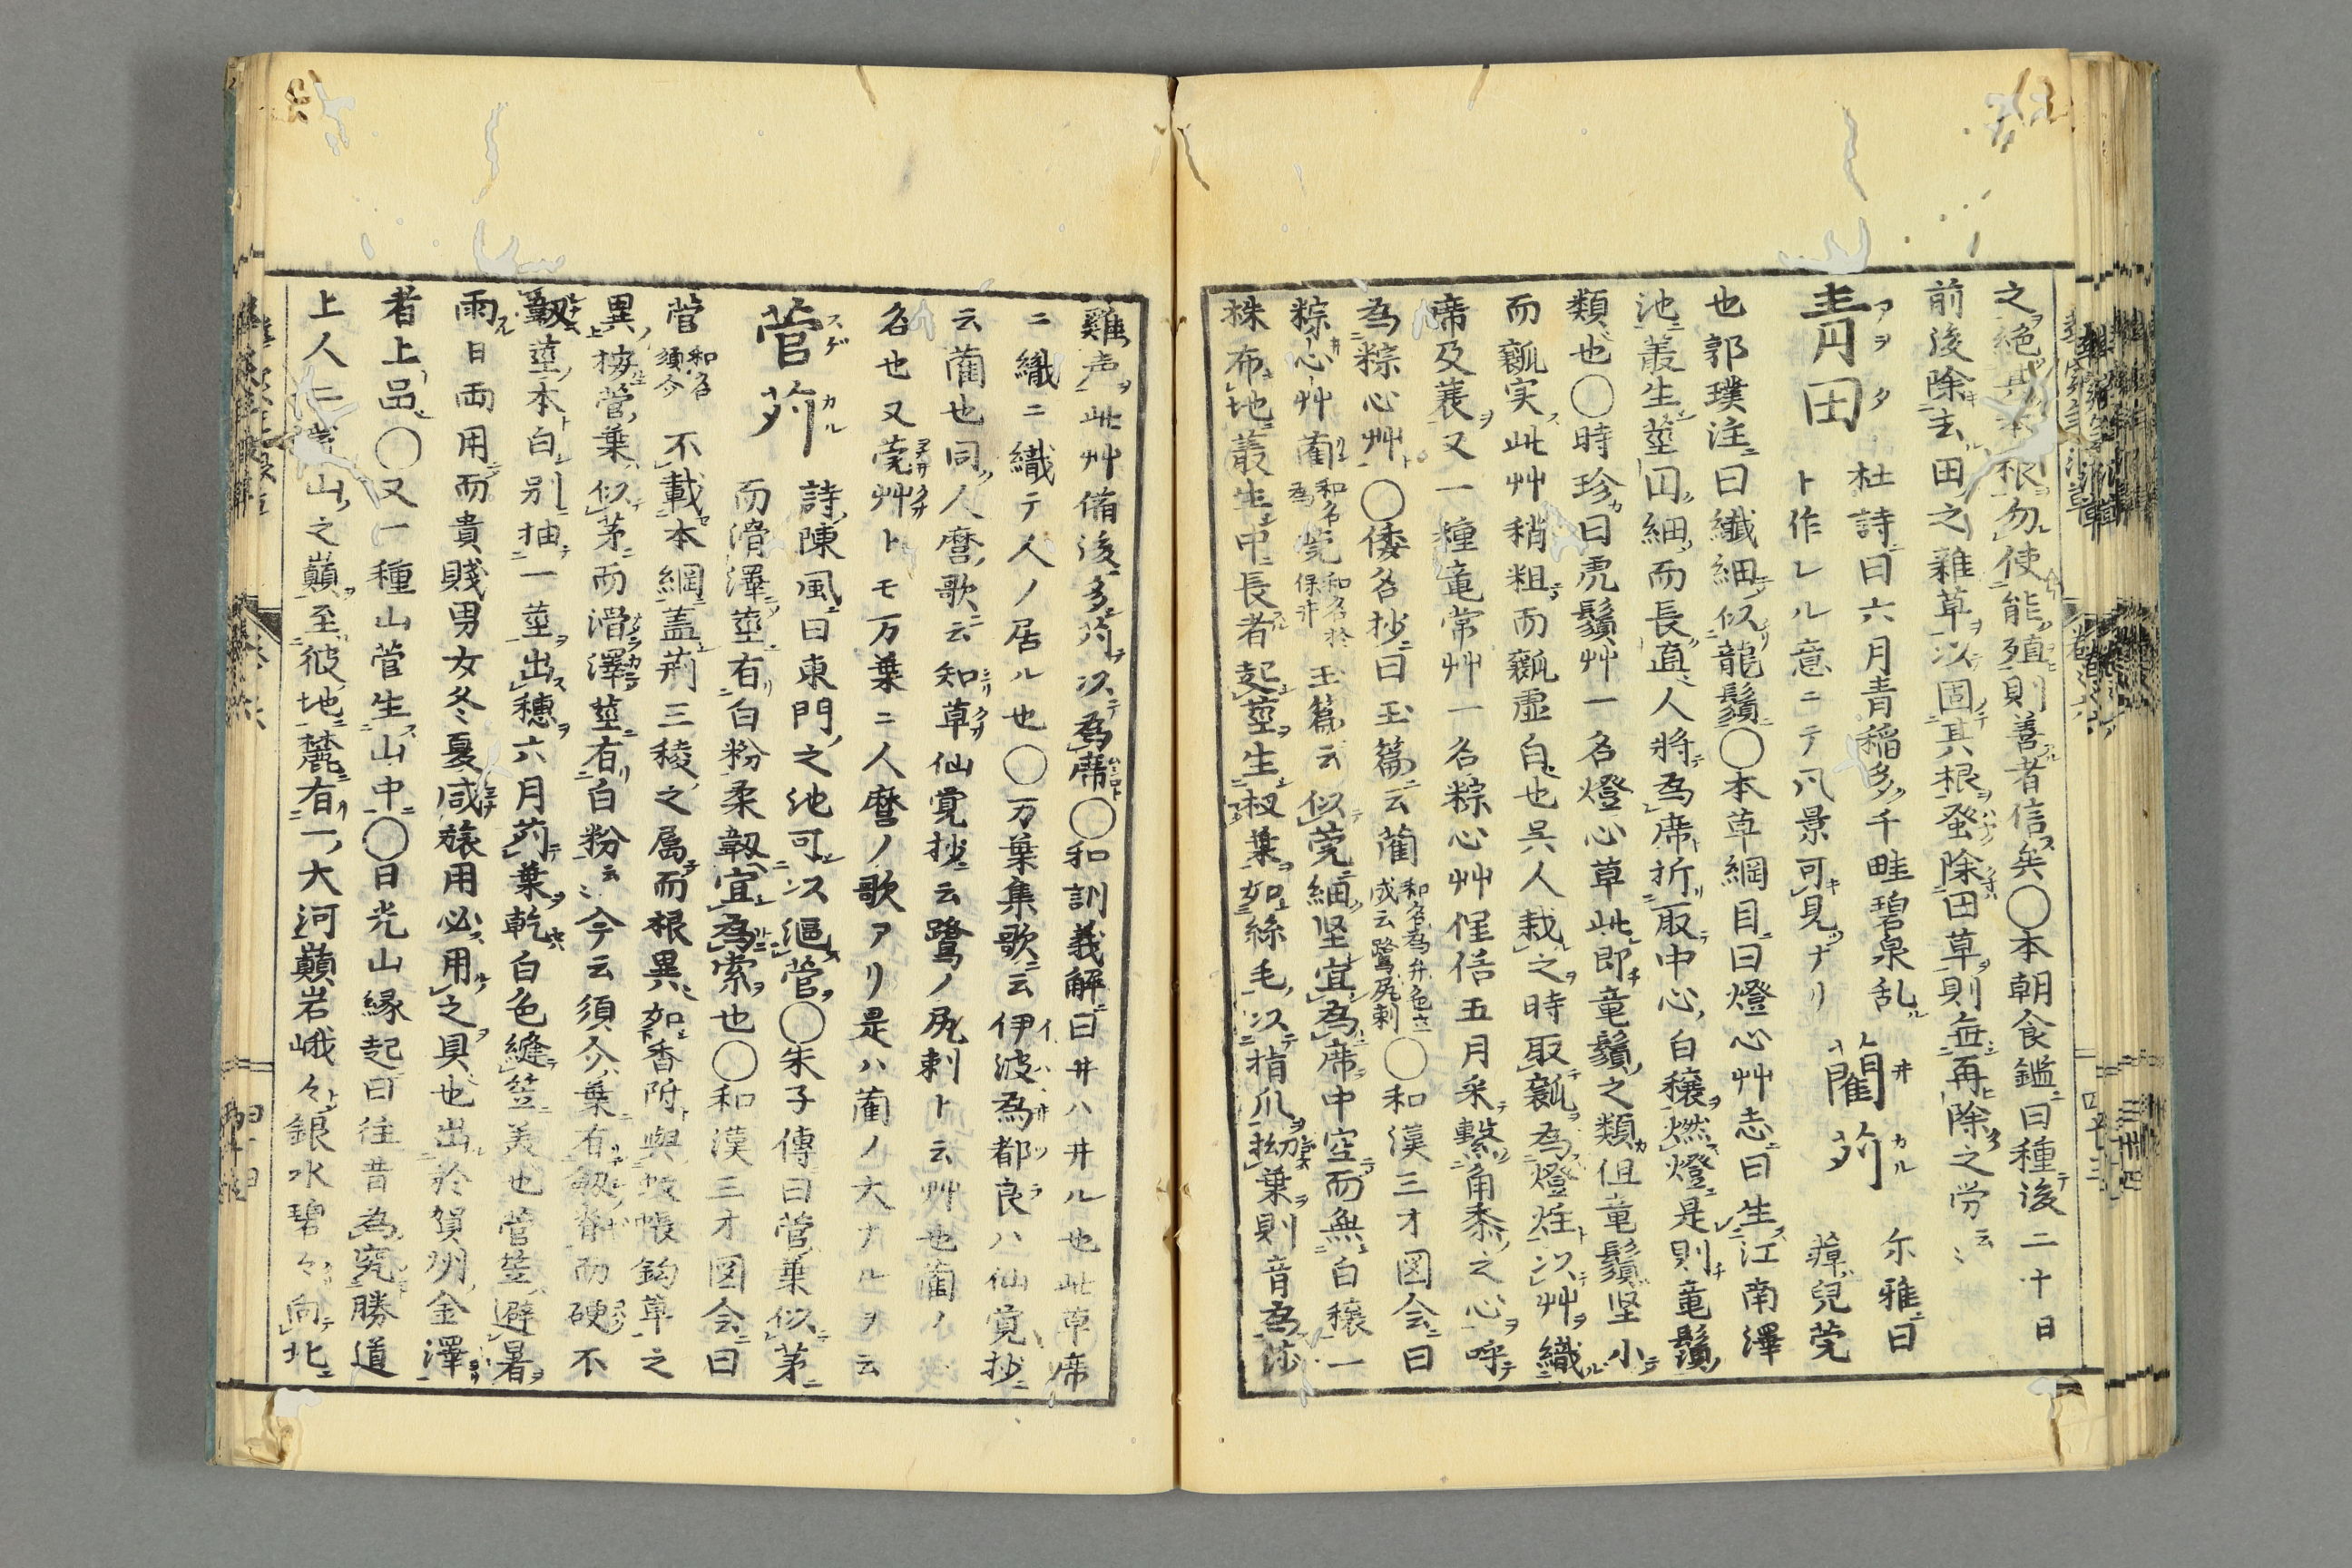 之絶其本根勿使能殖則善者信矣〇本朝食鑑曰種後二十日
前後除去田之雜草以固其根發除田草則無再除之労云〻
青田
アヲタ
杜詩曰六月青稲多千畦碧泉乱
ト作レル意ニテ凡景可見ナリ
藺苅
井カル
尓雅曰
䔮兒莞
也郭璞注曰纎細似龍鬚〇本草綱目曰燈心艸志曰生江南澤
池叢生莖円細而長直人將為席折取中心白穣燃燈是則竜鬚
類也〇時珍曰虎鬚艸一名燈心草此即竜鬚之類但竜鬚堅小
而瓤実此艸稍粗而瓤虚白也呉人栽之時取瓤為燈炷以艸織
席及蓑又一種竜常艸一名粽心艸俚俗五月采繋角黍之心呼
為粽心艸〇倭名抄曰玉篇云藺
和名為弁色立
成云鷺尻剌
〇和漢三才図会曰
粽心艸藺
和名
為
莞
和名於
保井
玉篇云似莞細堅宜為席中空而無白穣一
株布地叢生中長者起莖生杈葉如絲毛以指爪拗葉則音為莎
雞声此艸備後多苅以為席〇和訓義解曰井ハ井ル也此草席
ニ織ニ織テ人ノ居ル也〇万葉集歌云伊波為都良ハ仙覚抄
云藺也同人麿歌云知草仙覚抄云鷺ノ尻剌ト云艸也藺ノ
名也又莞艸トモ万葉ニ人麿ノ歌アリ是ハ藺ノ大ナルヲ云
菅苅
スゲカル
詩陳風曰東門之池可以漚菅〇朱子傳曰菅葉似茅
而滑澤莖有白粉柔韌宜為索也〇和漢三才図会曰
菅
和名
須介
不載本綱蓋荊三稜之属而根異如香附與蚊帳釣草之
異按菅葉似茅而滑澤莖有白粉云〻今云須介葉有劔脊而硬不
韌莖本白別抽一莖出穗六月苅葉乾白色縫笠美也菅笠避暑
雨日両用而貴賤男女冬夏咸旅用必用之具也出於賀州金澤
者上品〇又一種山菅生山中〇日光山縁起曰往昔為窕勝道
上人二荒山之巓至彼地麓有一大河巓岩峨々銀水碧々向北